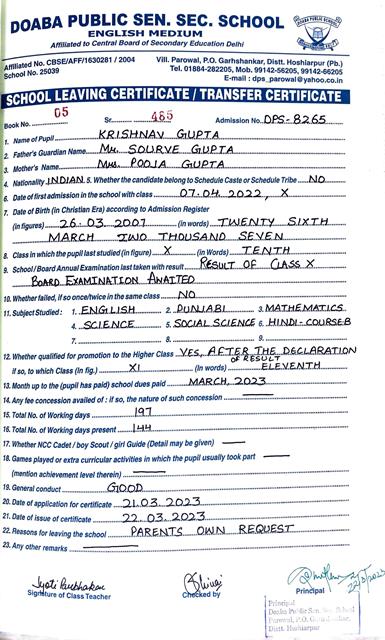 DOABA PUBLIC SEN. SEC. SCHOOL
ENGLISH MEDIUM
Affiliated to Central Board of Secondary Education Delhi
Affiliated No. CBSE/AFF/1630281 / 2004
School No. 25039
Vill. Parowal, P.O. Garhshankar, Distt. Hoshiarpur (Pb.)
Tel. 01884-282205, Mob. 99142-56205, 99142-66205
E-mail : dps_parowal@yahoo.co.in
SCHOOL LEAVING CERTIFICATE / TRANSFER CERTIFICATE
Book No. 05 Sr. 465 Admission No. DPS-8265
1. Name of Pupil KRISHNAV GUPTA
2. Father's Guardian Name Mr. SOURVE GUPTA
3. Mother's Name Mrs. POOJA GUPTA
4. Nationality INDIAN 5. Whether the candidate belong to Schedule Caste or Schedule Tribe NO
6. Date of first admission in the school with class 07.04.2022, X
7. Date of Birth (in Christian Era) according to Admission Register
(in figures) 26.03.2007 (in words) TWENTY SIXTH
MARCH TWO THOUSAND SEVEN
8. Class in which the pupil last studied (in figure) X (in Words) TENTH
9. School / Board Annual Examination last taken with result RESULT OF CLASS X
BOARD EXAMINATION AWAITED
10. Whether failed, if so once/twice in the same class NO
11. Subject Studied : 1. ENGLISH 2. PUNJABI 3. MATHEMATICS
4. SCIENCE 5. SOCIAL SCIENCE 6. HINDI-COURSE-B
7. 8. 9.
12. Whether qualified for promotion to the Higher Class YES, AFTER THE DECLARATION
OF RESULT
if so, to which Class (in fig.) XI (in Words) ELEVENTH
13. Month up to the (pupil has paid) school dues paid MARCH, 2023
14. Any fee concession availed of : if so, the nature of such concession
15. Total No. of Working days 197
16. Total No. of Working days present 144
17. Whether NCC Cadet / boy Scout / girl Guide (Detail may be given)
18. Games played or extra curricular activities in which the pupil usually took part
(mention achievement level therein)
19. General conduct GOOD
20. Date of application for certificate 21.03.2023
21. Date of issue of certificate 22.03.2023
22. Reasons for leaving the school PARENTS OWN REQUEST
23. Any other remarks
Signature of Class Teacher
Checked by
Principal 22/3/2023
Principal
Doaba Public Sen. Sec. School
Parowal, P.O. Garhshankar,
Distt. Hoshiarpur